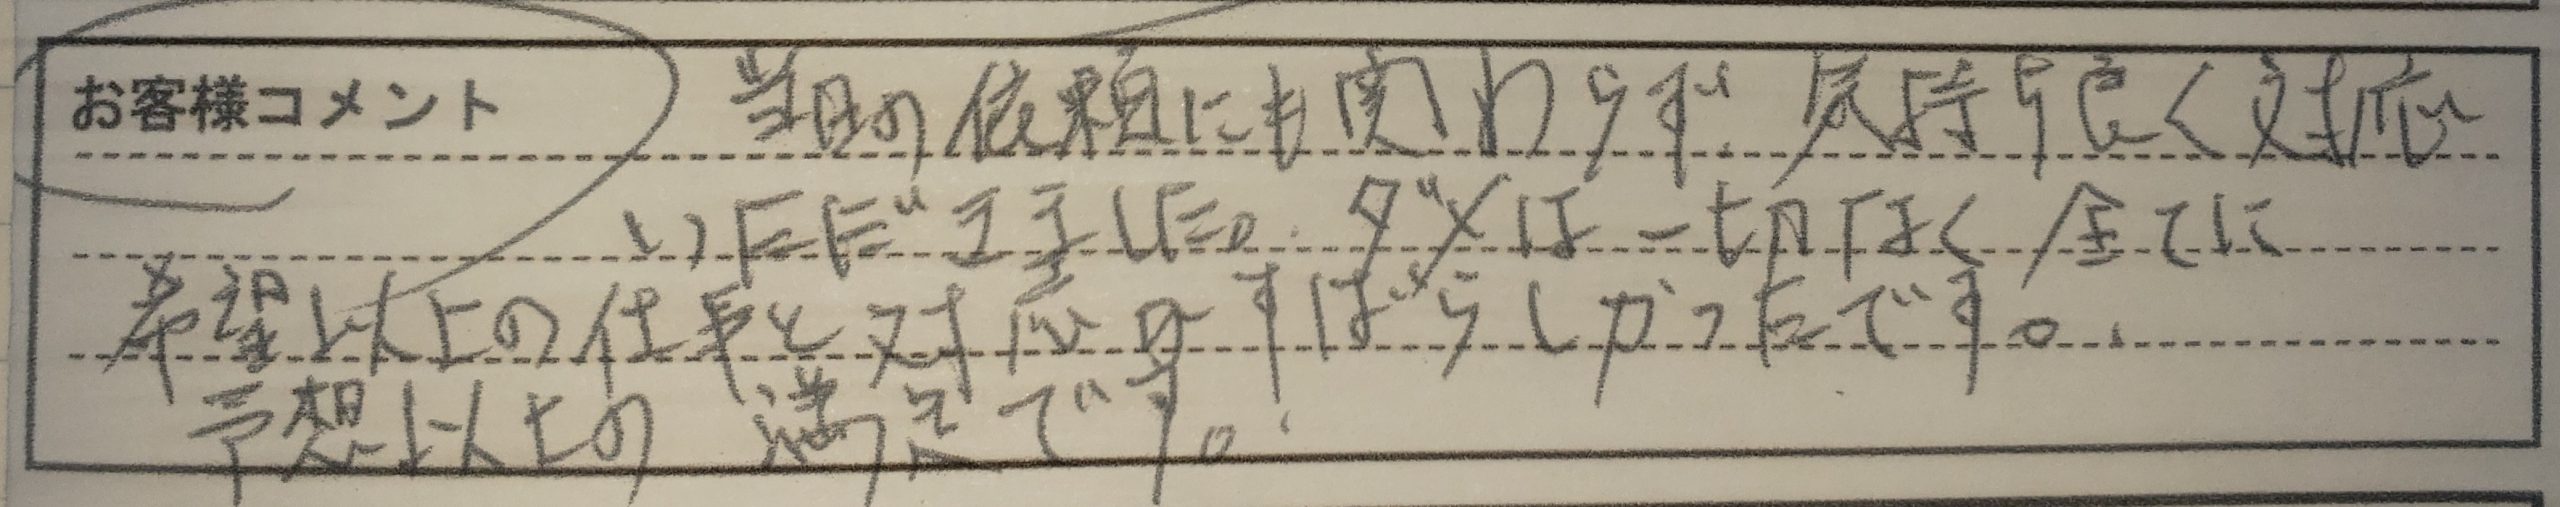 お客様コメント 当日の依頼にも関わらず、気持ち良く対応
いただきました。ダメは一切なく全てに
希望以上の仕事と対応のすばらしかったです。
予想以上の満足です。